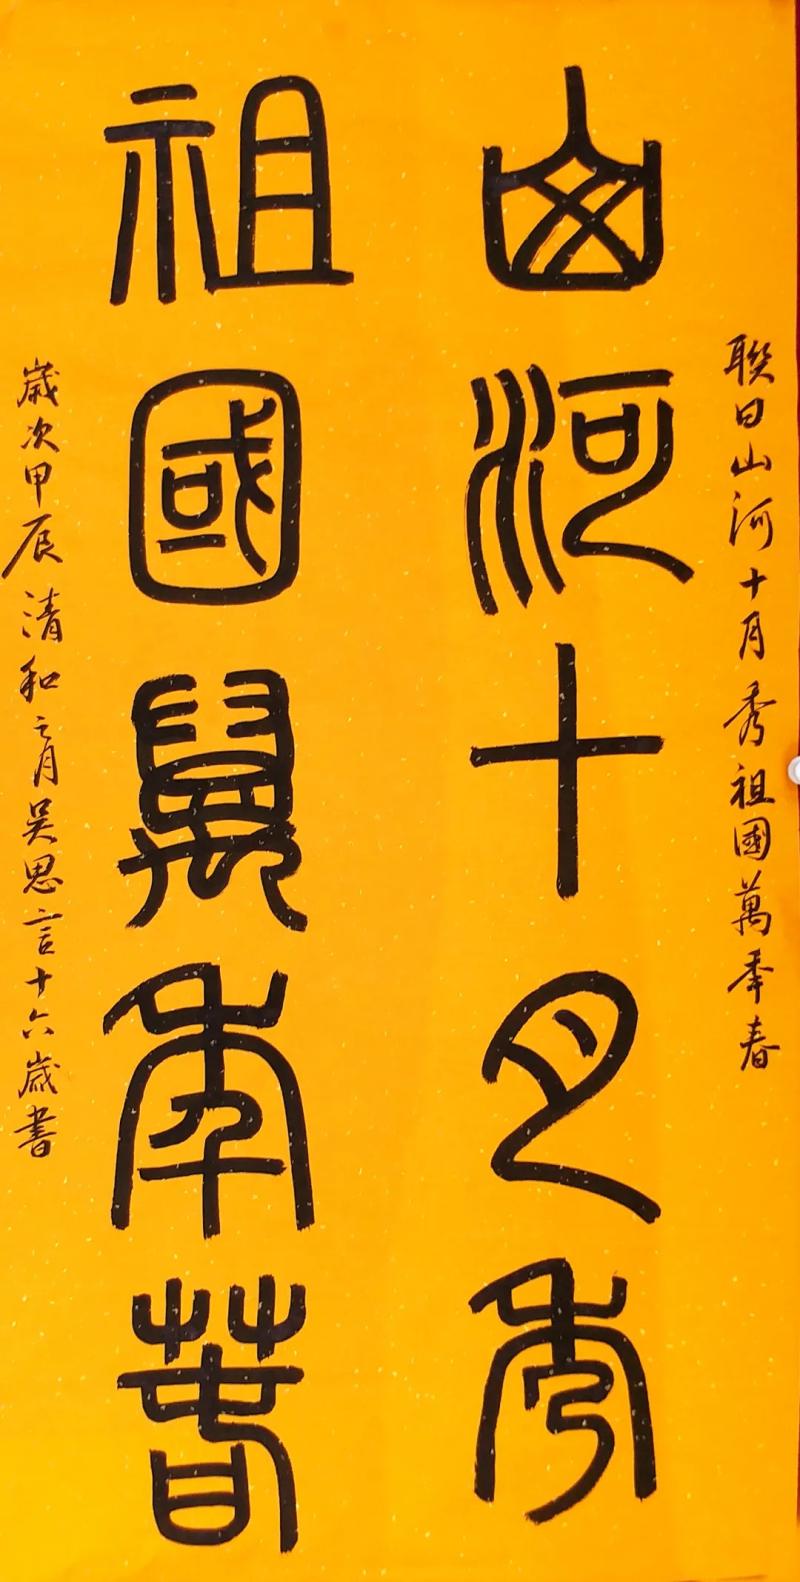 聯曰山河十月秀祖國萬年春
山河十月秀
祖國萬年春
歲次甲辰清和之月吳思言十六歲書